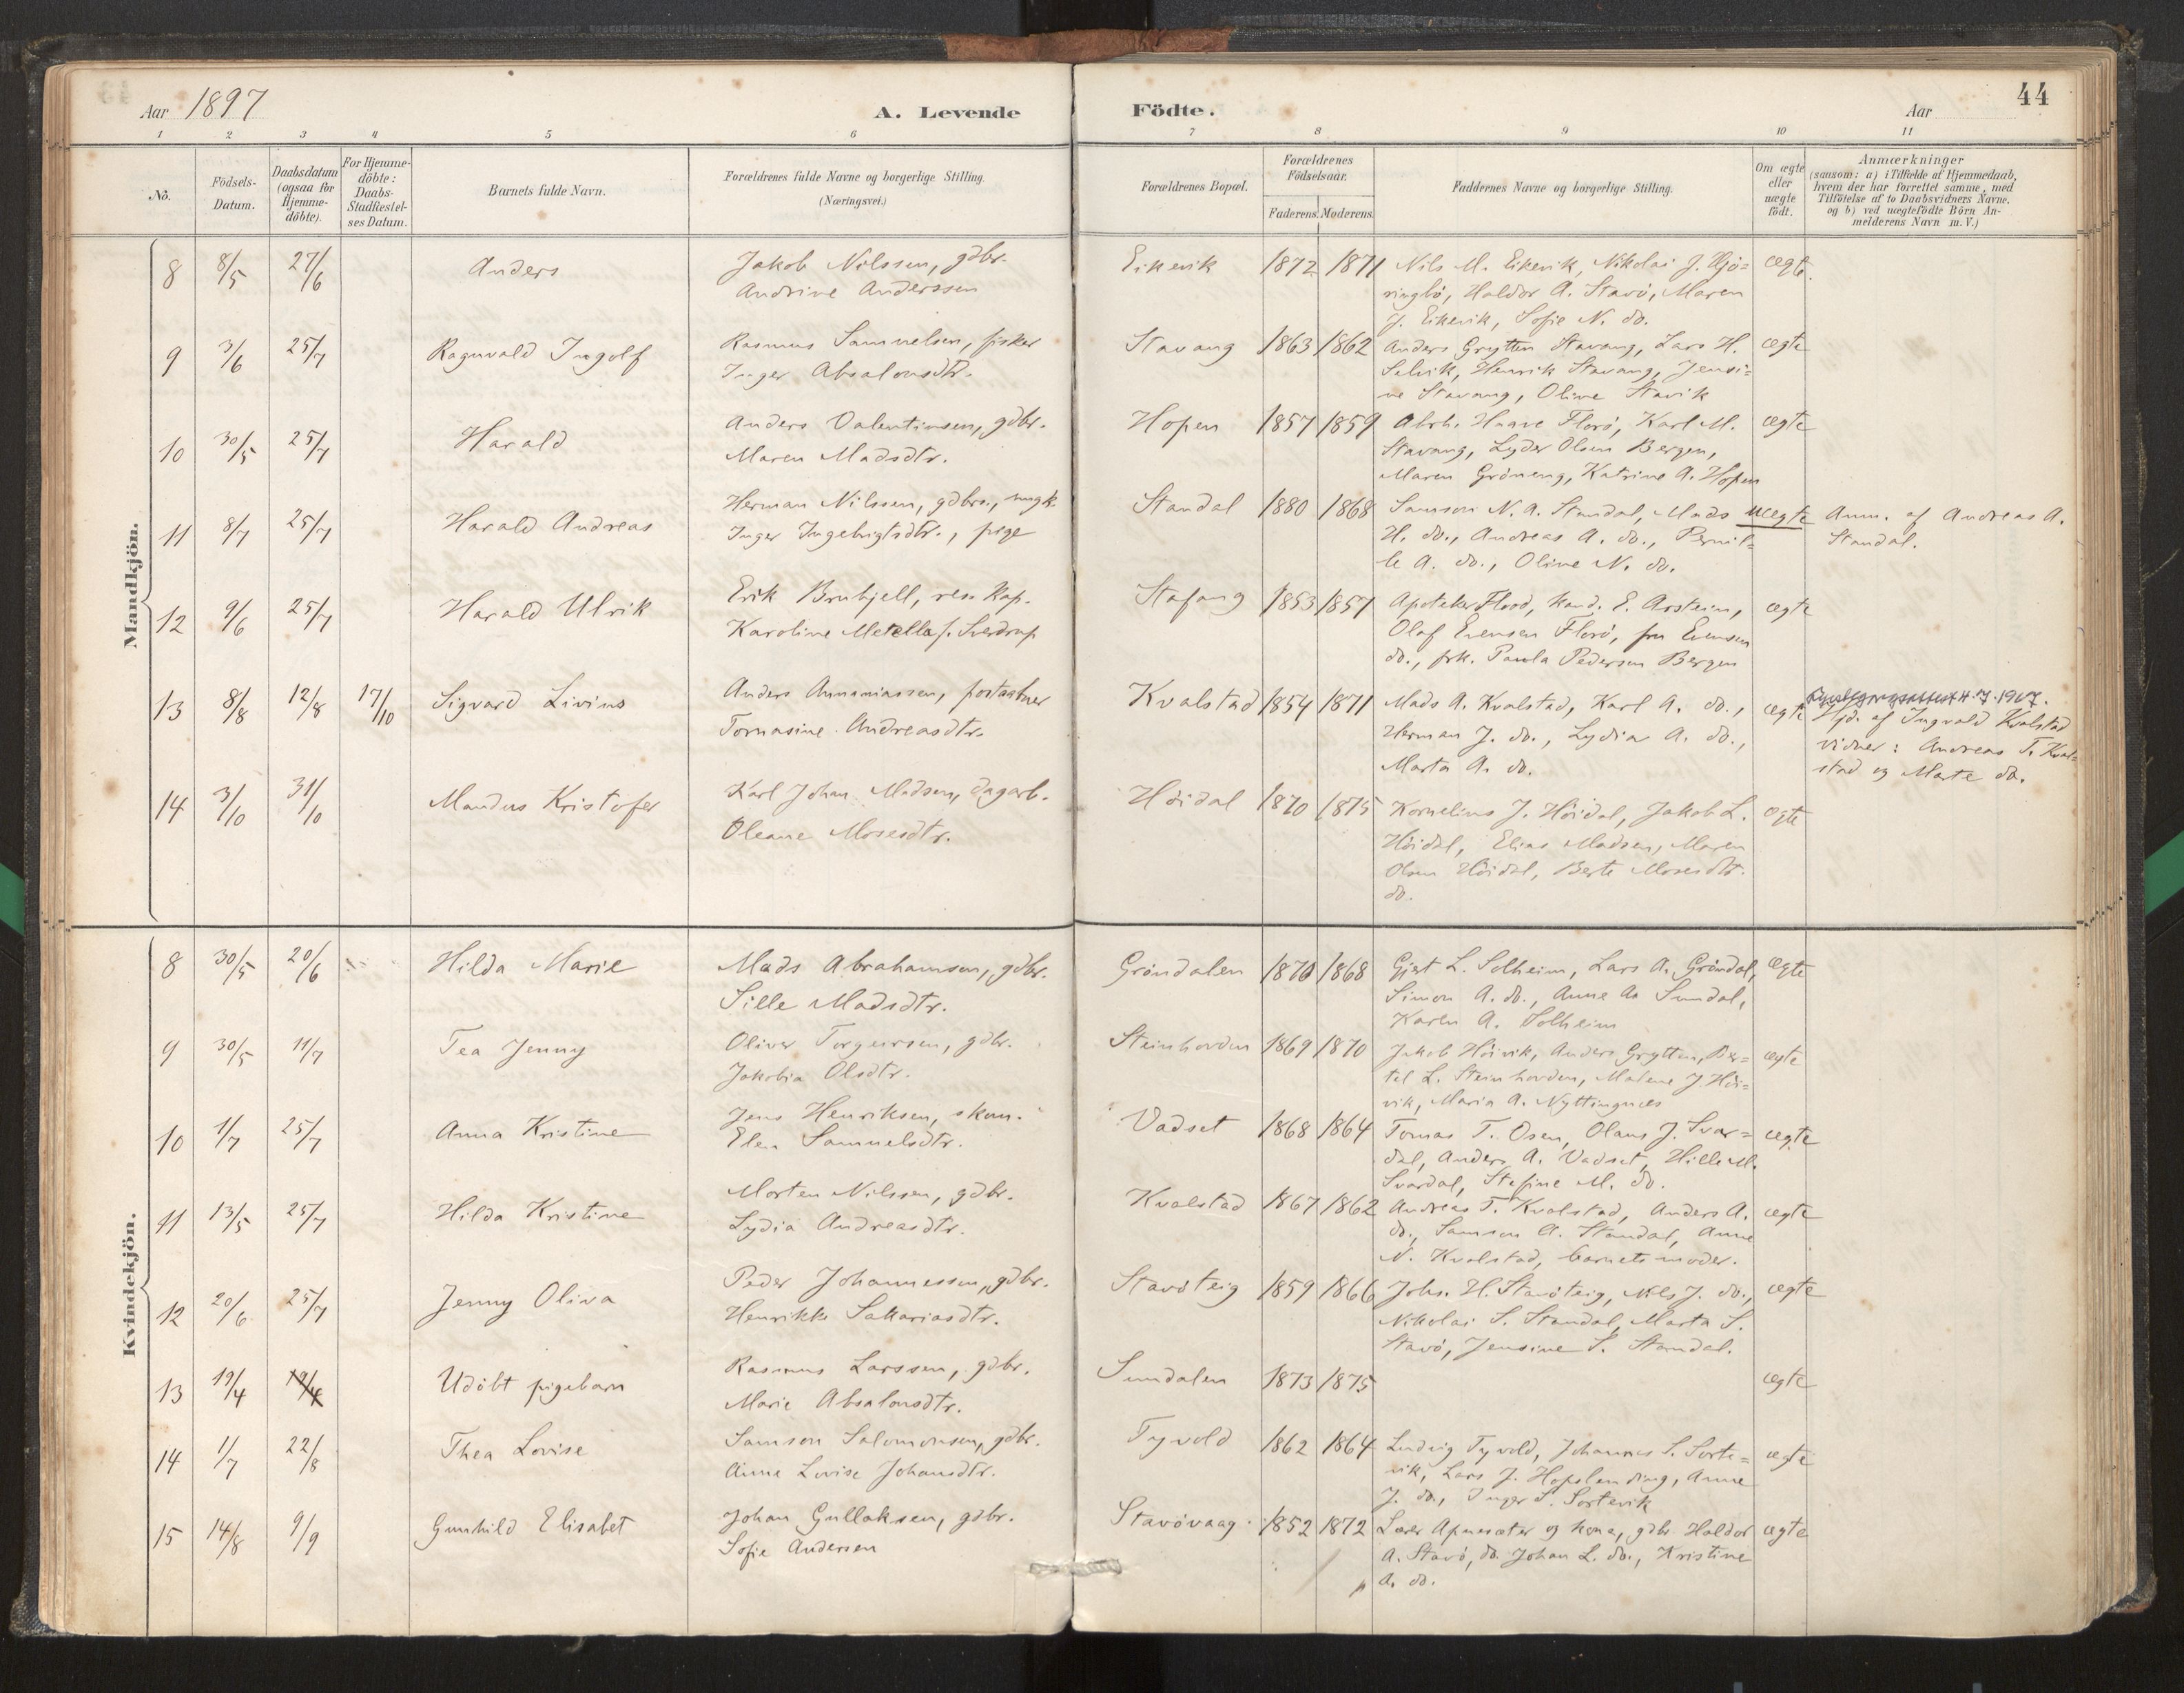 Aar 1897
A. Levende
Födte.
Aar
44
1 2 3 4 5 6 7 8 9 10 11
No.
Födsels-Datum.
Daabsdatum (ogsaa for Hjemme-döbte).
For Hjemme-döbte: Daabs-Stadfæstel-ses Datum.
Barnets fulde Navn.
Forældrenes fulde Navne og borgerlige Stilling.
(Næringsvei.)
Forældrenes Bopæl.
Forældrenes Födselsaar.
Faderens. Moderens.
Faddernes Navne og borgerlige Stilling.
Om ægte eller uægte födt.
Anmærkninger
(saasom: a) i Tilfælde af Hjemmedaab,
hvem der har forrettet samme, med
Tilföielse af to Daabsvidners Navne,
og b) ved uægtefödte Börn An-
melderens Navn m.V.)
Mandkjön.
8 8/5 27/6 Anders
Jakob Nilssen, gdbr.
Andrine Anderssen
Eikevik 1872 1871
Nils M. Eikevik, Nikolai J. Hjö=
ringbö, Haldor A. Stavö, Maren
J. Eikevik, Sofie N. do.
ægte.
9 3/6 25/7 Ragnvald Ingolf
Rasmus Samuelsen, fisker
Inger Absalonsdtr.
Stavang 1863 1862
Anders Grytten Stavang, Lars H.
Selvik, Henrik Stavang, Jensi=
ne Stavang, Oline Stavik
ægte
10 30/5 25/7 Harald
Anders Valentinsen, gdbr.
Maren Madsdtr.
Hopen 1857 1859
Abrh. Haave Florö, Karl M.
Stavang, Lyder Olsen Bergen,
Maren Gröneng, Katrine A. Hopen
ægte
11 8/7 25/7 Harald Andreas
Herman Nilssen, gdbrs., ungk.
Inger Ingebrigtsdtr., pige
Standal 1880 1868
Samson N. A. Standal, Mads
H. do., Andreas A. do., Pernil=
le A. do., Oline N. do.
uægte
Anm. af Andreas A.
Standal.
12 9/6 25/7 Harald Ulrik
Erik Bruhjell, res. Kap.
Karoline Metella f. Sverdrup
Stafang 1853 1857
Apoteker Flood, kand. E. Arstein,
Olaf Evensen Florö, fru Evensen
do., frk. Paula Pedersen Bergen
ægte
13 8/8 12/8 17/10 Sigvard Livins
Anders Annaniassen, postaabner
Tomasine Andreasdtr.
Kvalstad 1854 1871
Mads A. Kvalstad, Karl A. do.,
Herman J. do., Lydia A. do.,
Marta A. do.
ægte
4.7.1917.
Hjd. af Ingvald Kvalstad
vidner: Andreas T. Kval=
stad og Marte do.
14 3/10 31/10 Mandus Kristofer
Karl Johan Madsen, dagarb.
Oleane Mosesdtr.
Höidal 1870 1875
Kornelius J. Höidal, Jakob L.
Höidal, Elias Madsen, Maren
Olsen Höidal, Berte Mosesdtr.
do.
ægte
Kvindekjön.
8 30/5 20/6 Hilda Marie
Mads Abrahamsen, gdbr.
Sille Madsdtr.
Gröndalen 1870 1868
Gjert L. Solheim, Lars A. Gröndal,
Simon A. do., Anne A. Sundal,
Karen A. Solheim
ægte
9 30/5 11/7 Tea Jenny
Oliver Torgersen, gdbr.
Jakobia Olsdtr.
Steinhovden 1869 1870
Jakob Höivik, Anders Grytten, Ber=
tel L. Steinhovden, Malene J. Höi=
vik, Maria A. Nyttingnæs
ægte
10 1/7 25/7 Anna Kristine
Jens Henriksen, skom.
Elen Samuelsdtr.
Vadset 1868 1864
Tomas T. Osen, Olaus J. Svar=
dal, Anders A. Vadset, Hille M.
Svardal, Stefine M. do.
ægte
11 13/5 25/7 Hilda Kristine
Morten Nilssen, gdbr.
Lydia Andreasdtr.
Kvalstad 1867 1862
Andreas T. Kvalstad, Anders A.
do., Samson A. Standal, Anne
N. Kvalstad, barnets moder.
ægte
12 20/6 25/7 Jenny Oliva
Peder Johannessen, gdbr.
Henrikke Sakariasdtr.
Stavöteig 1859 1866
Johs. H. Stavöteig, Nils J. do.,
Nikolai S. Standal, Marta S.
Stavö, Jensine S. Standal.
ægte
13 19/4 19/4 Udöbt pigebarn
Rasmus Larssen, gdbr.
Marie Absalonsdtr.
Sundalen 1873 1875
ægte
14 1/7 22/8 Thea Lovise
Samson Salomonsen, gdbr.
Anne Lovise Johansdtr.
Tyvold 1862 1864
Ludvig Tyvold, Johannes S. Sorte=
vik, Lars J. Hopslending, Anne
J. do., Inger S. Sortevik
ægte
15 14/8 9/9 Gunhild Elisabet
Johan Gullaksen, gdbr.
Sofie Andersen
Stavövaag 1852 1872
Lærer Apnesæter og kone, gdbr. Haldor
A. Stavö, do. Johan L. do., Kristine
A. do.
ægte